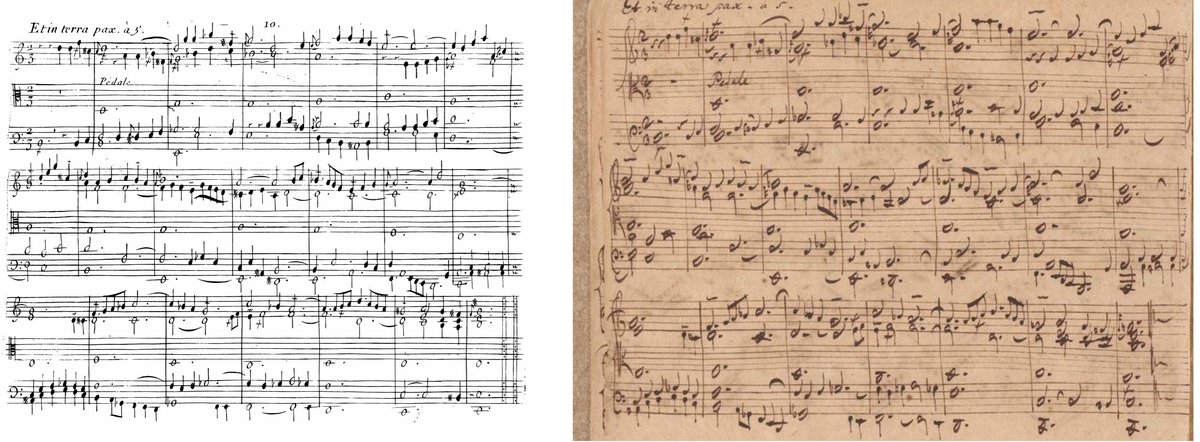 Et in terra pax. à 5.
10.
Pédale
Et in terra pax. à 5.
Pedale